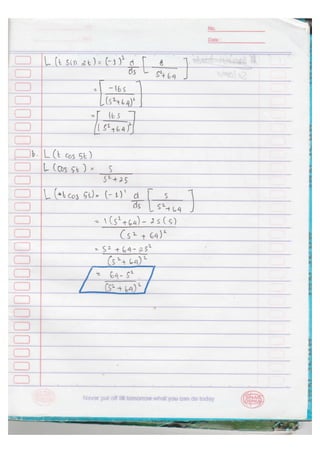 No.
Date:
L (t sin 8t) = (-1)¹ d/ds [ 8 / s²+64 ]
= [ -16s / (s²+64)² ]
= [ 16s / (s²+64)² ]
16. L (t cos 5t)
L (cos 5t) = s / s²+25
L (t cos 5t) = (-1)¹ d/ds [ s / s²+64 ]
= 1(s²+64) - 2s(s) / (s² + 64)²
= s² + 64 - 2s² / (s² + 64)²
= 64 - s² / (s² + 64)²
Never put off till tomorrow what you can do today